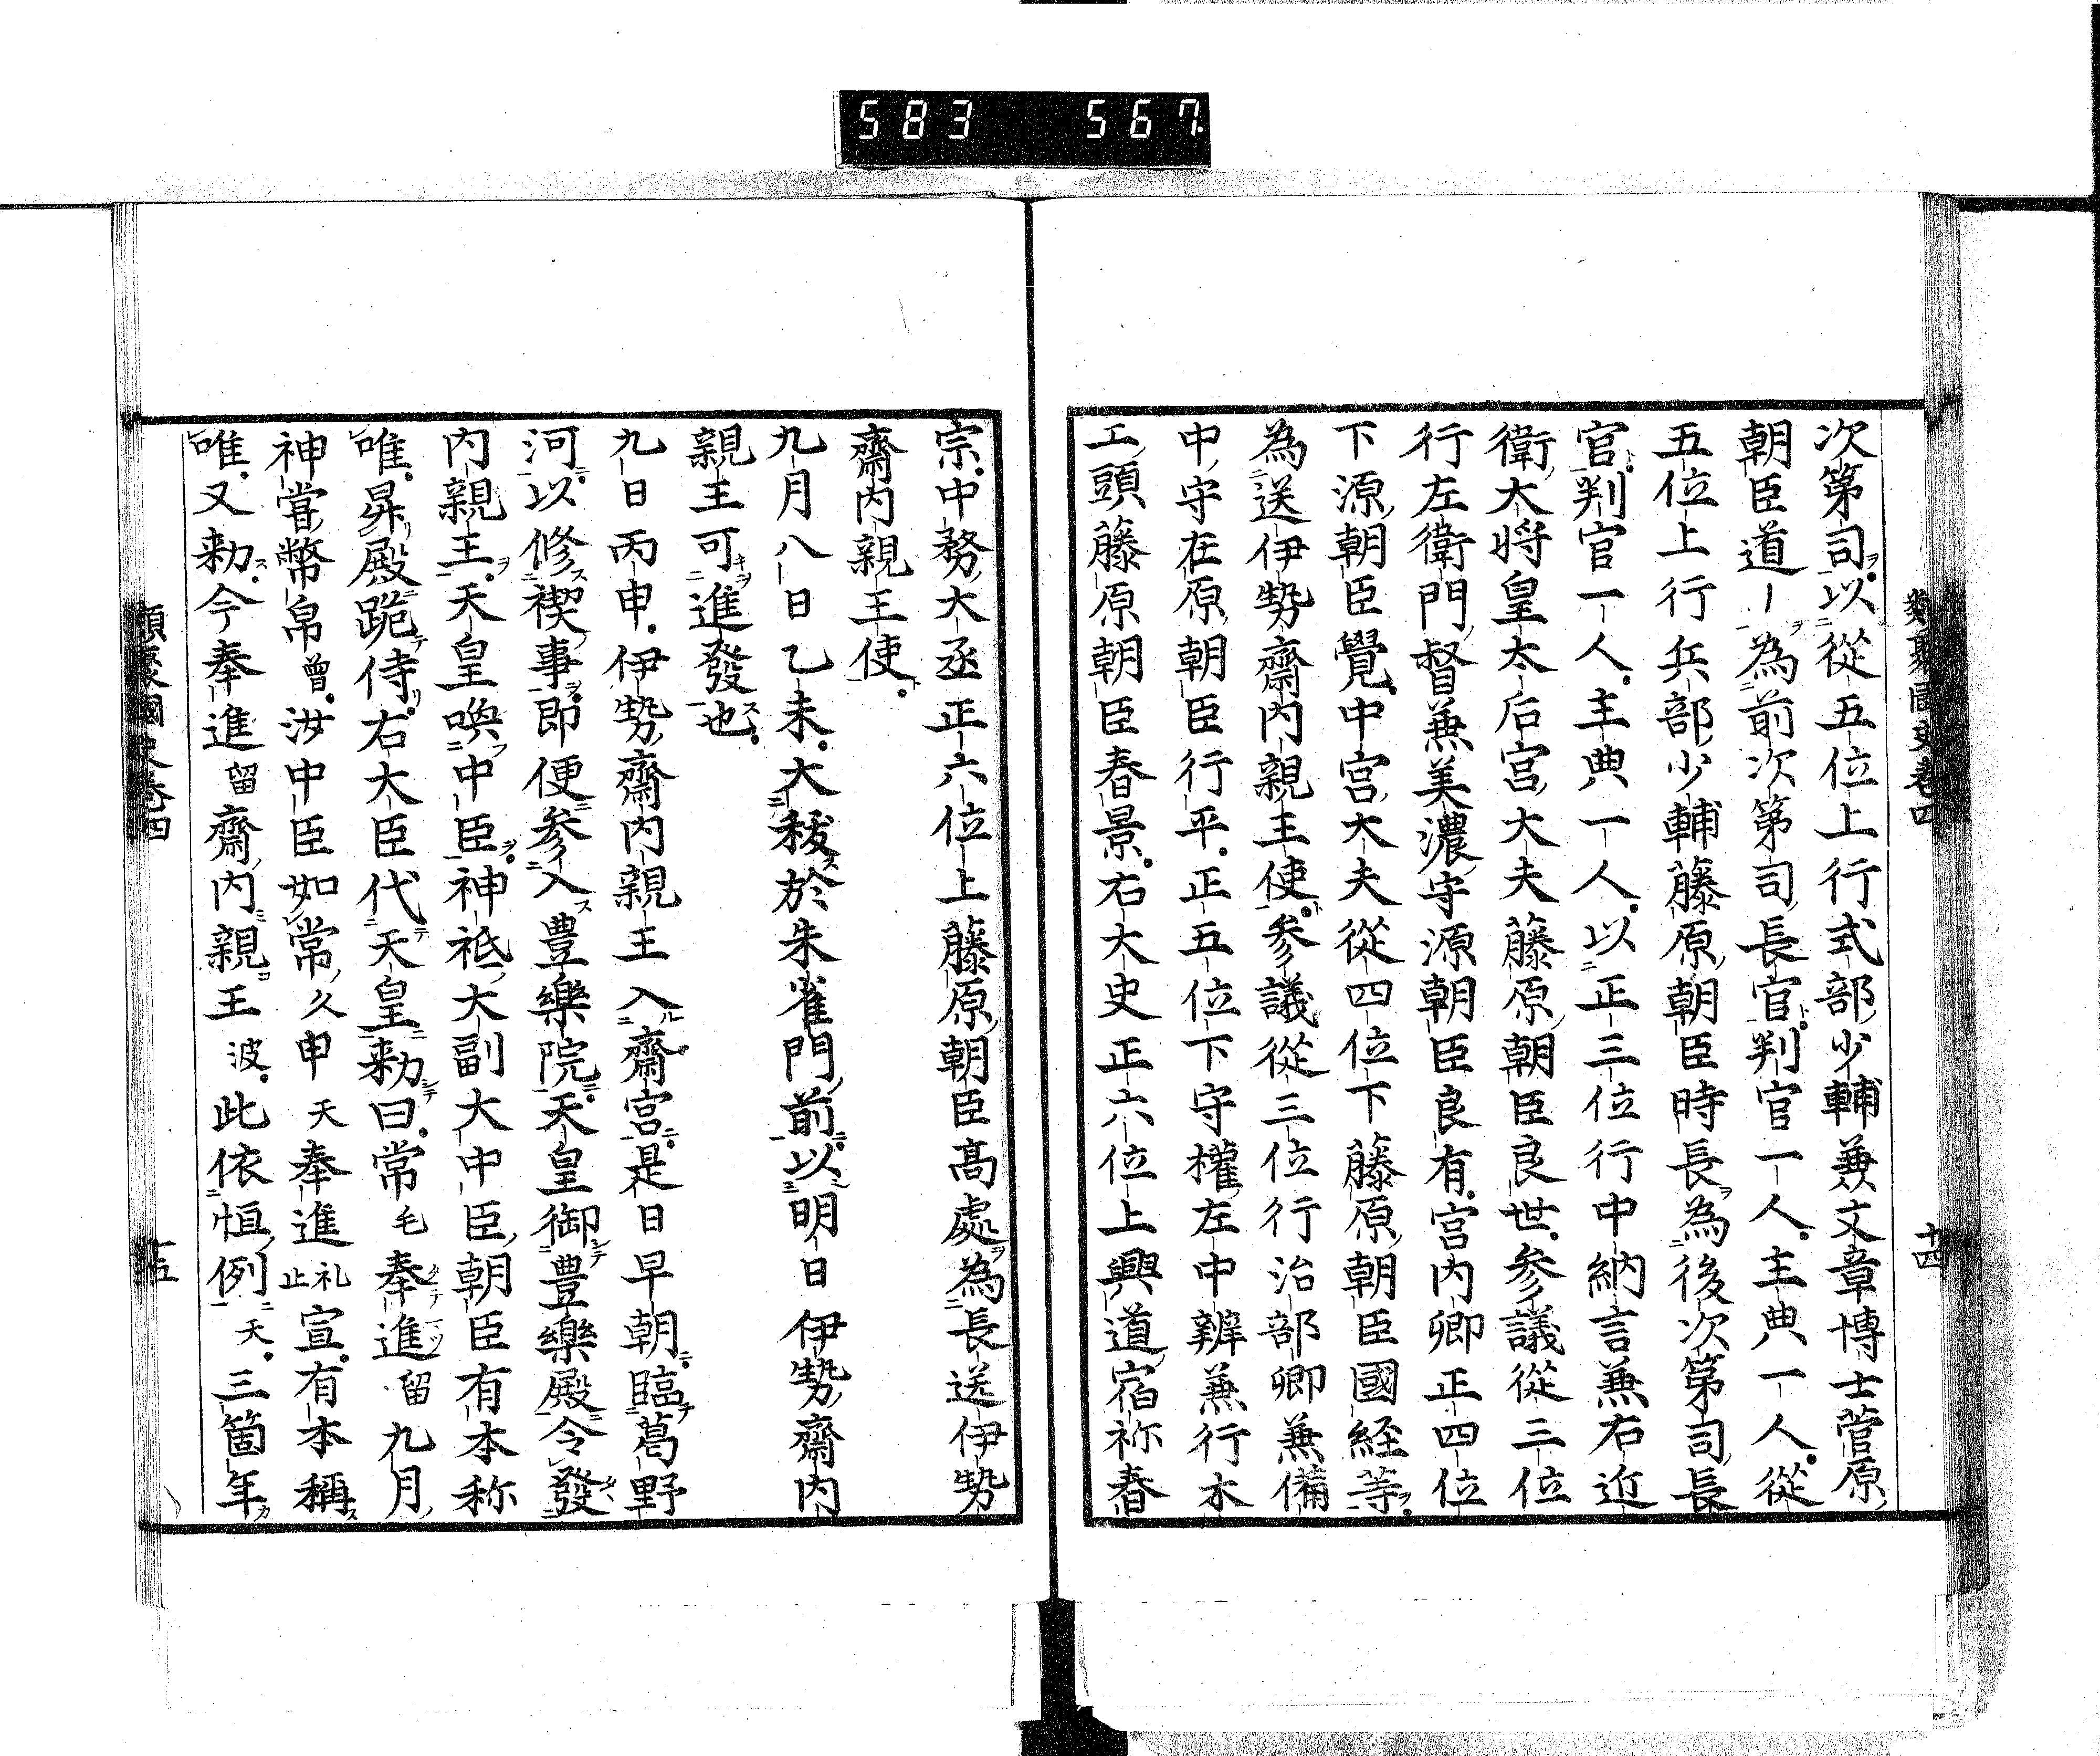 583 567
類聚國史卷四 十四
次第司以從五位上行式部少輔兼文章博士菅原
朝臣道〡為前次第司長官判官一人主典一人從
五位上行兵部少輔藤原朝臣時長為後次第司長
官判官一人主典一人以正三位行中納言兼右近
衛大將皇太后宮大夫藤原朝臣良世参議從三位
行左衛門督兼美濃守源朝臣良有宮内卿正四位
下源朝臣覺中宮大夫從四位下藤原朝臣國経等
為送伊勢齋内親王使参議從三位行治部卿兼備
中守在原朝臣行平正五位下守權左中辨兼行木
工頭藤原朝臣春景右大史正六位上興道宿祢春
宗中務大丞正六位上藤原朝臣髙處為長送伊勢
齋内親王使
九月八日乙未大秡於朱雀門前以明日伊勢齋内
親王可進發也
九日丙申伊勢齋内親王入齋宮是日早朝臨葛野
河以修禊事即便参入豊樂院天皇御豊樂殿令發
内親王天皇喚中臣神祇大副大中臣朝臣有本称
唯昇殿跪侍右大臣代天皇勅曰常毛奉進留九月
神嘗幣帛曽汝中臣如常久申天奉進礼止宣有本稱
唯又勅今奉進留齋内親王波此依恒例天三箇年
類聚國史卷四 十五